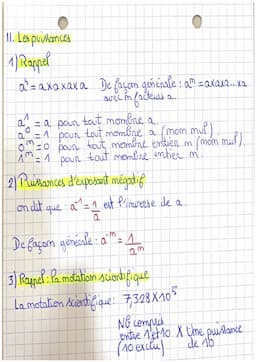 II. Les puissances
1) Rappel
a⁴ = a x a x a x a De façon générale : aᵐ = a x a x a ... x a
avec m facteurs a.
a¹ = a pour tout nombre a.
a⁰ = 1 pour tout nombre a (non nul).
0ᵐ = 0 pour tout nombre entier m (non nul).
1ᵐ = 1 pour tout nombre entier m.
2) Puissances d'exposant négatif
on dit que : a⁻¹ = 1/a est l'inverse de a.
De façon générale : a⁻ᵐ = 1/aᵐ
3) Rappel : la notation scientifique
La notation scientifique : 7,328 X 10⁵
Nb compris
entre 1 et 10 X Une puissance
(10 exclu) de 10